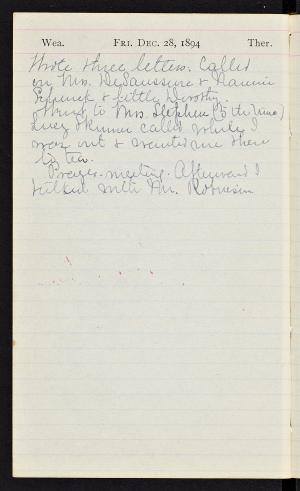 Wea. FRI. DEC. 28, 1894 Ther.
Wrote three letters. Called
on Mrs. DeSaussure & Nannie
& little Dorothy.
to Mrs. Stephen (to the
Lucy Skinner called while I
was out & wanted me there
to tea.
Prayer-meeting. Afterward I
talked with Mr. Robinson